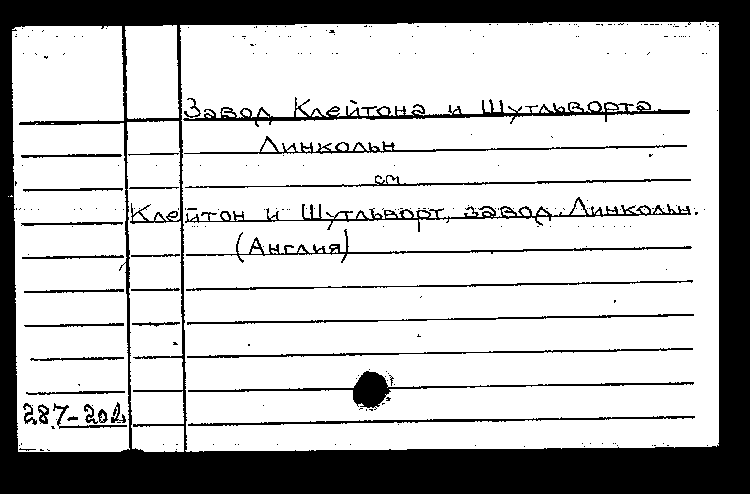 Завод Клейтона и Шутльворта.
Линкольн
см.
Клейтон и Шутльворт, завод. Линкольн.
(Англия)